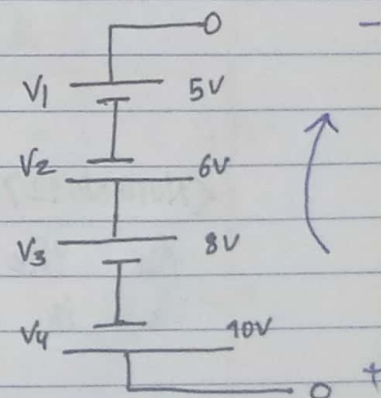 -
V1 5V
V2 6V
V3 8V
V4 10V
+